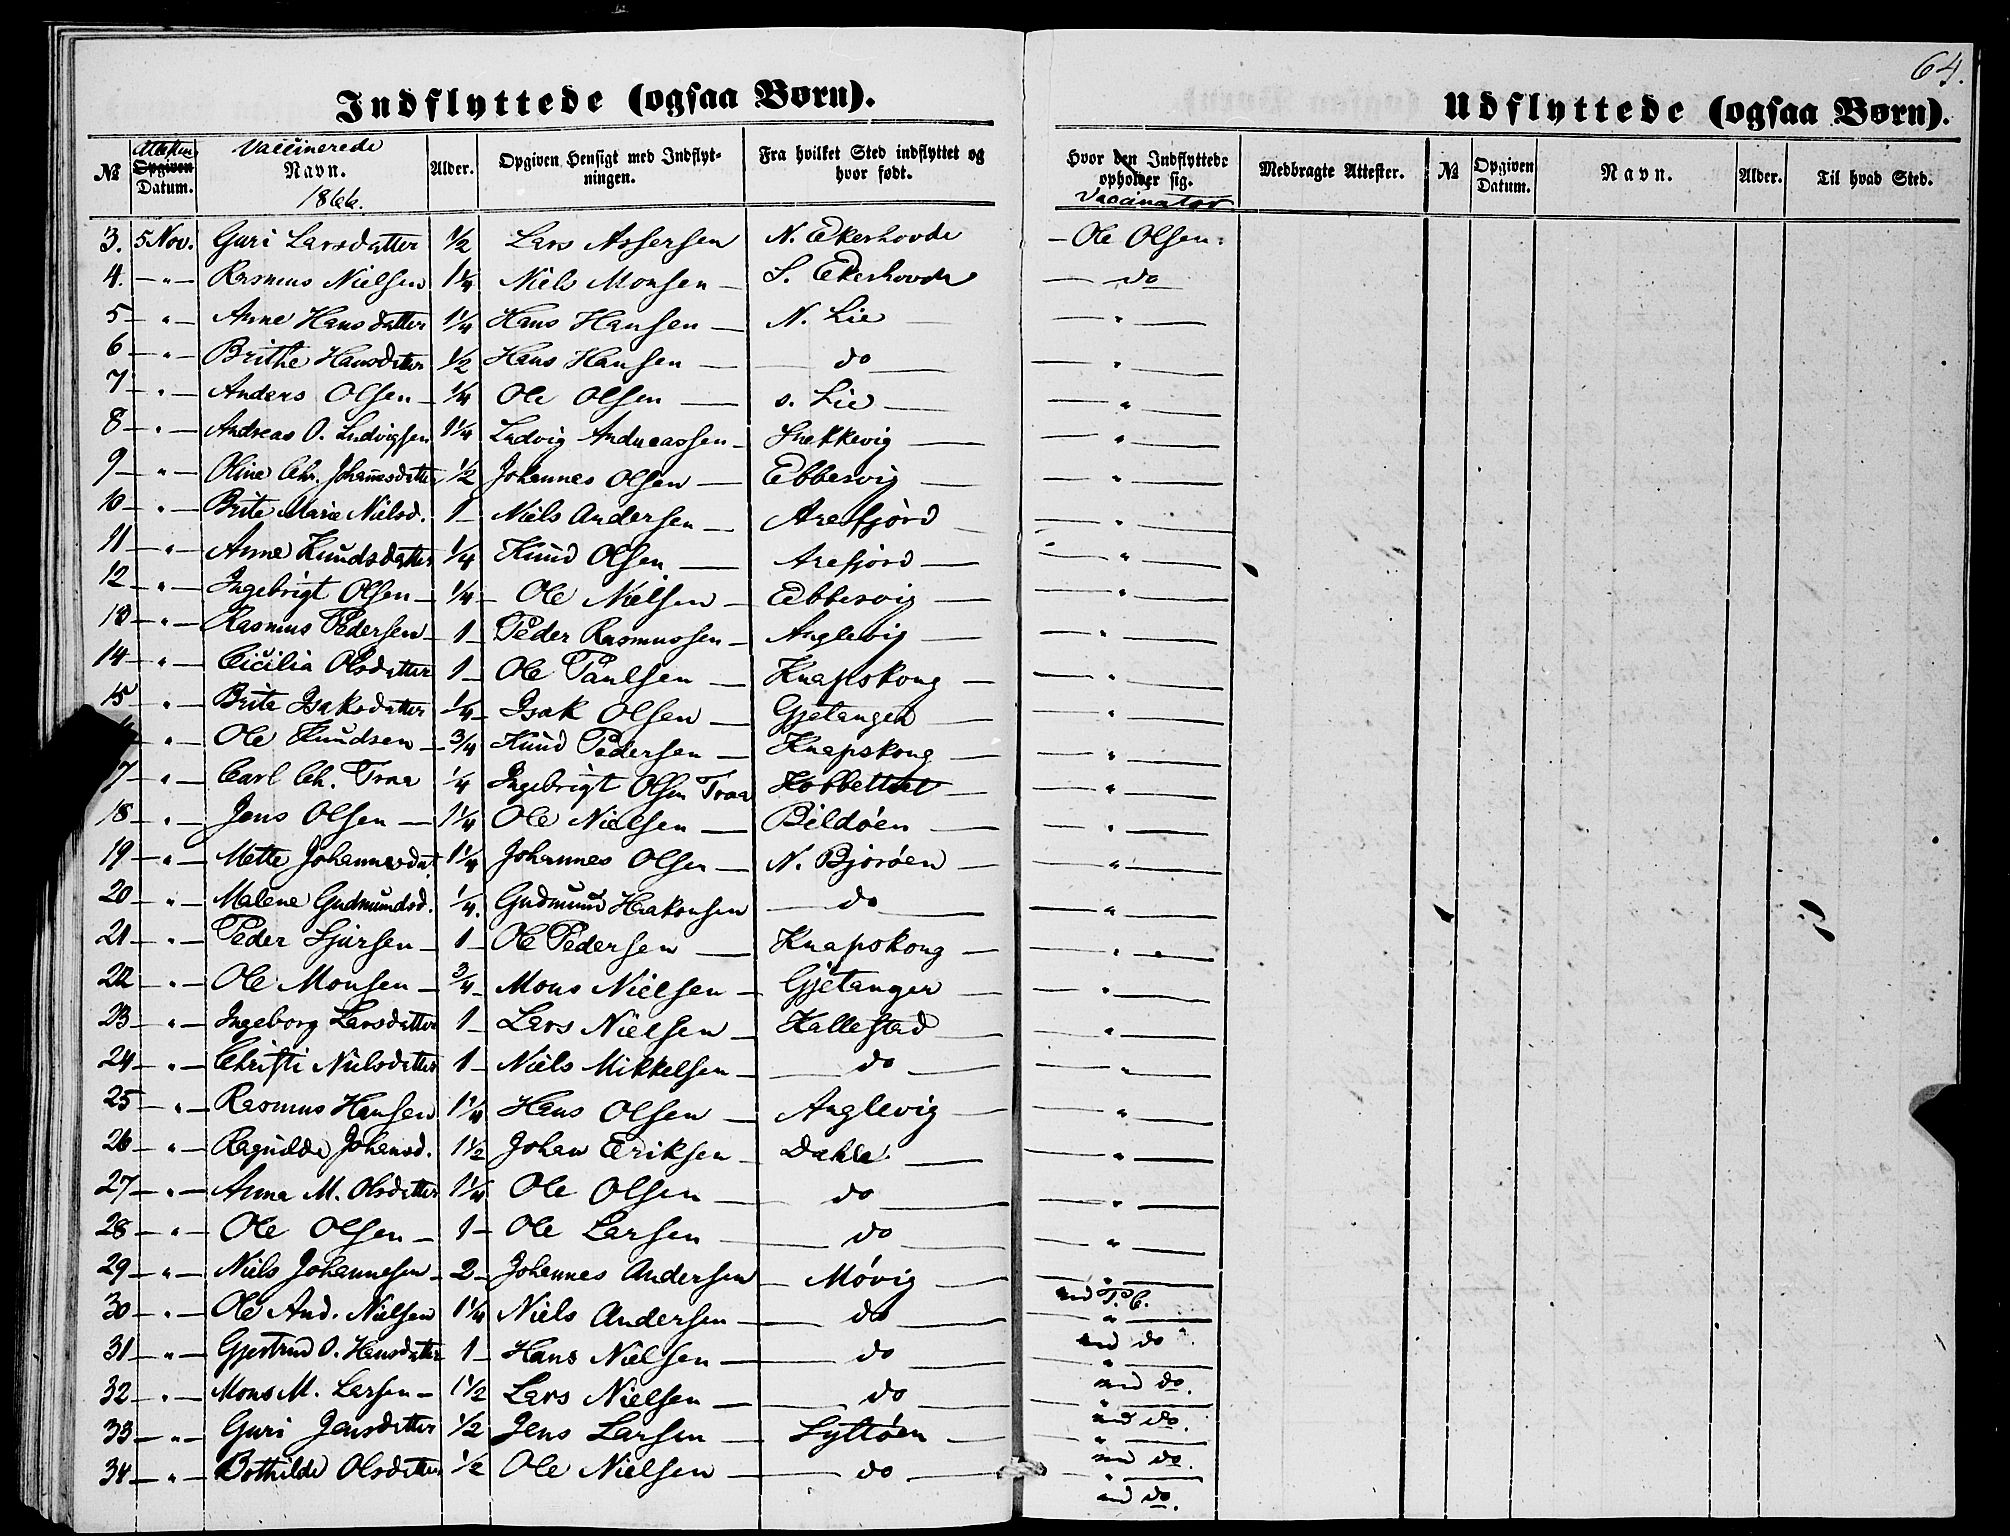 64.
Indflyttede (ogsaa Børn).
Udflyttede (ogsaa Børn).
№ Attesten Opgiven Datum. Vaccinerede Navn. 1866. Alder. Opgiven Hensigt med Indflytningen. Fra hvilket Sted indflyttet og hvor født. Hvor den Indflyttede opholder sig. Vaccinator Medbragte Attester. № Opgiven Datum. Navn. Alder. Til hvad Sted.
3. 5 Nov. Guri Larsdatter 1/2 Lars Assersen N. Ekerhovde - Ole Olsen.
4. - " - Rasmus Nielsen 1 1/4 Niels Monsen - S. Ekerhovde - do
5 - " - Anne Hansdatter 1 1/4 Hans Hansen - N. Lie - " -
6 - " - Brithe Hansdatter 1/2 Hans Hansen - do - " -
7 - " - Anders Olsen - 1/4 Ole Olsen - s. Lie - " -
8 - " - Andreas O. Ludvigsen 1 1/4 Ludvig Andreassen - Snekkevig - " -
9 - " - Oline Chr. Johannesdatter 1/2 Johannes Olsen - Ebbesvig - " -
10 - " - Brite Marie Nielsd. 1 - Niels Andersen - Arefjord - " -
11 - " - Anne Knudsdatter 1/4 Knud Olsen - Arefjord - " -
12 - " - Ingebrigt Olsen - 1/4 - Ole Nielsen - Ebbesvig - " -
13 - " - Rasmus Pedersen - 1 - Peder Rasmussen - Anglevig - " -
14 - " - Cicilia Olsdatter 1 - Ole Paulsen - Knapskoug - " -
15 - " - Brite Isaksdatter 1/4 - Isak Olsen - Gjetangen - " -
" - Ole Knudsen - 3/4 Knud Pedersen - Knapskoug - " -
7 - " - Carl Ch. Traa 1/4 Ingebrigt Olsen Traa - " -
18 - " - Jens Olsen - 1 1/4 Ole Nielsen - Bildøen - " -
19 - " - Mette Johannesdat. 1 1/4 Johannes Olsen - N. Bjorøen - " -
20 " Malene Gudmundsd. 1/4. Gudmund Haakonsen - do - " -
21 - " - Peder Sjursen - 1 - Ole Pedersen - Knapskoug - " -
22 - " - Ole Monsen - 3/4 - Mons Nielsen - Gjetanger - " -
23 - " - Ingeborg Larsdatter 1 - Lars Nielsen - Kallestad - " -
24 - " - Christi Nielsdatter 1 - Niels Mikkelsen - do - " -
25 - " - Rasmus Hansen 1 1/4 Hans Olsen - Anglevig - " -
26 - " - Ragnilda Johansd. 1 1/2 Johan Eriksen - Dahle - " -
27 - " - Anna M. Olsdatter 1 1/4 Ole Olsen - do - " -
28 - " - Ole Olsen - 1 - Ole Larsen - do - " -
29 - " - Niels Johannesen - 2 - Johannes Andersen - Møvig - " -
30 - " - Ole And. Nielsen 1 1/4 Niels Andersen - do - " -
31 - " - Gjertrud O. Hansdatter 1 - Hans Nielsen - do - " - do
32 - " - Mons M. Larsen - 1 1/2 Lars Nielsen - do - " - do.
33 - " - Guri Jensdatter 1/2 Jens Larsen - Syltøen - " - do.
34 - " - Bothilde Olsdatter 1/2 Ole Nielsen - do - " - do.
do.